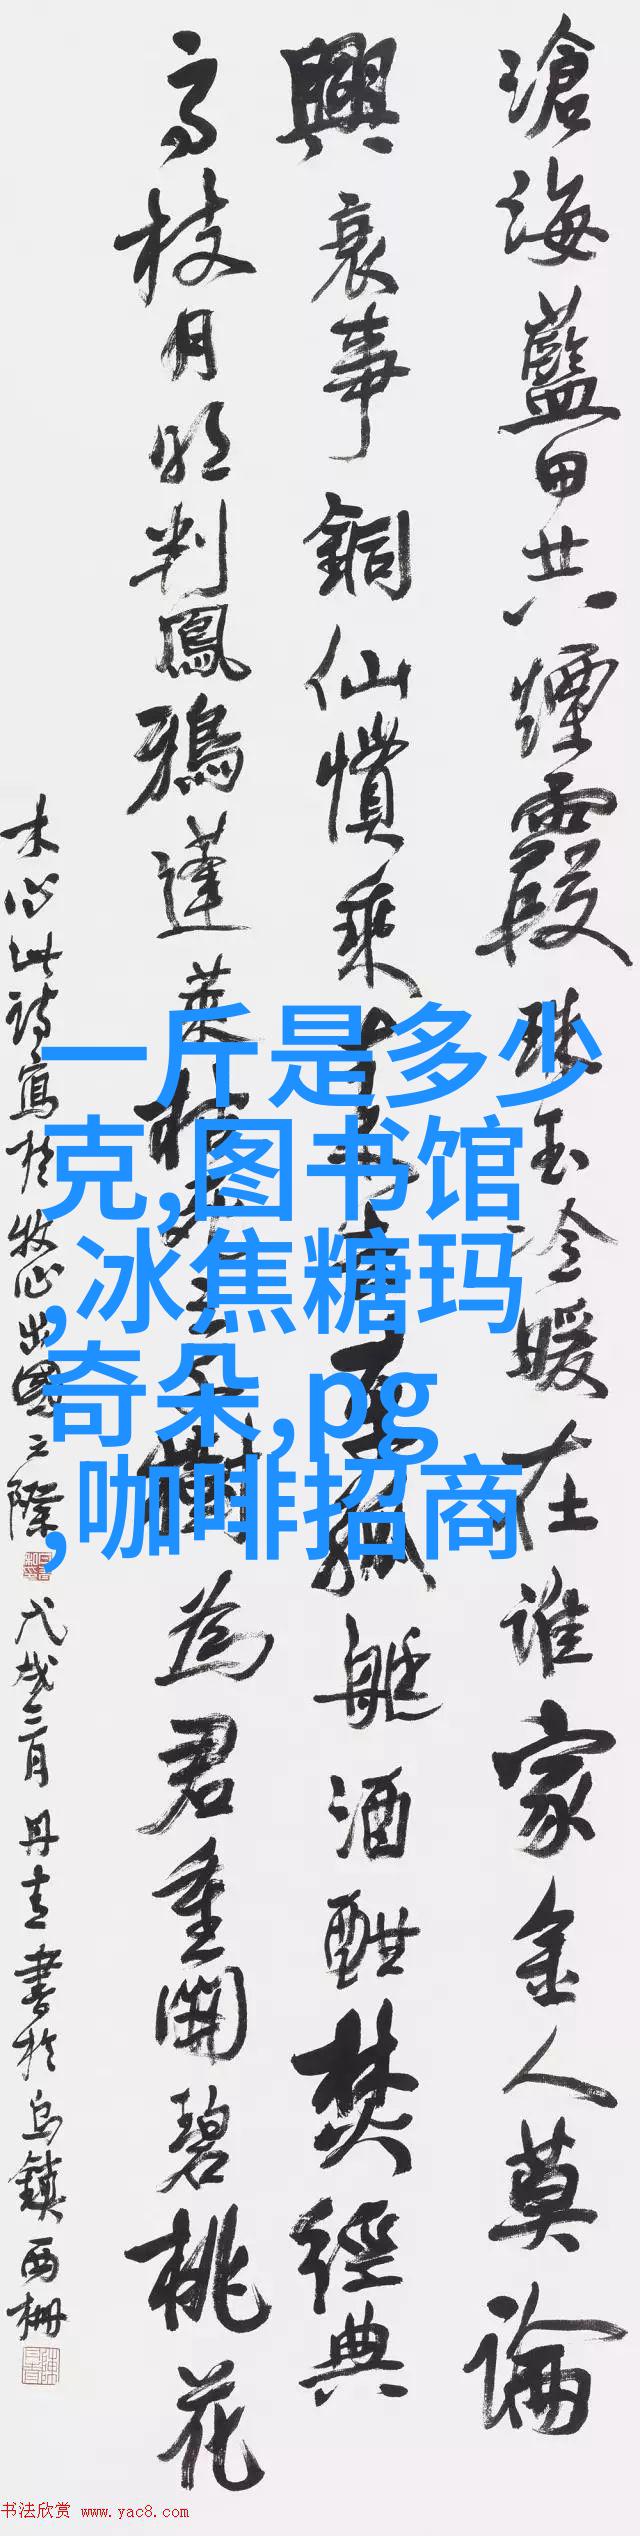 滄海藍田共煙霞珠玉冷暖在谁家金人莫論
興衰事銅仙慣乘
艇酒酣焚經典
高枝月明判鳳鴉蓬萊
樹為君重開碧桃花
木心此詩寫於牧心出國之際
戊戌三月丹青書於烏鎮西柵
一斤是多少
克,图书馆
,冰焦糖玛
奇朵,pg
,咖啡招商
书法欣赏 www.yac8.com